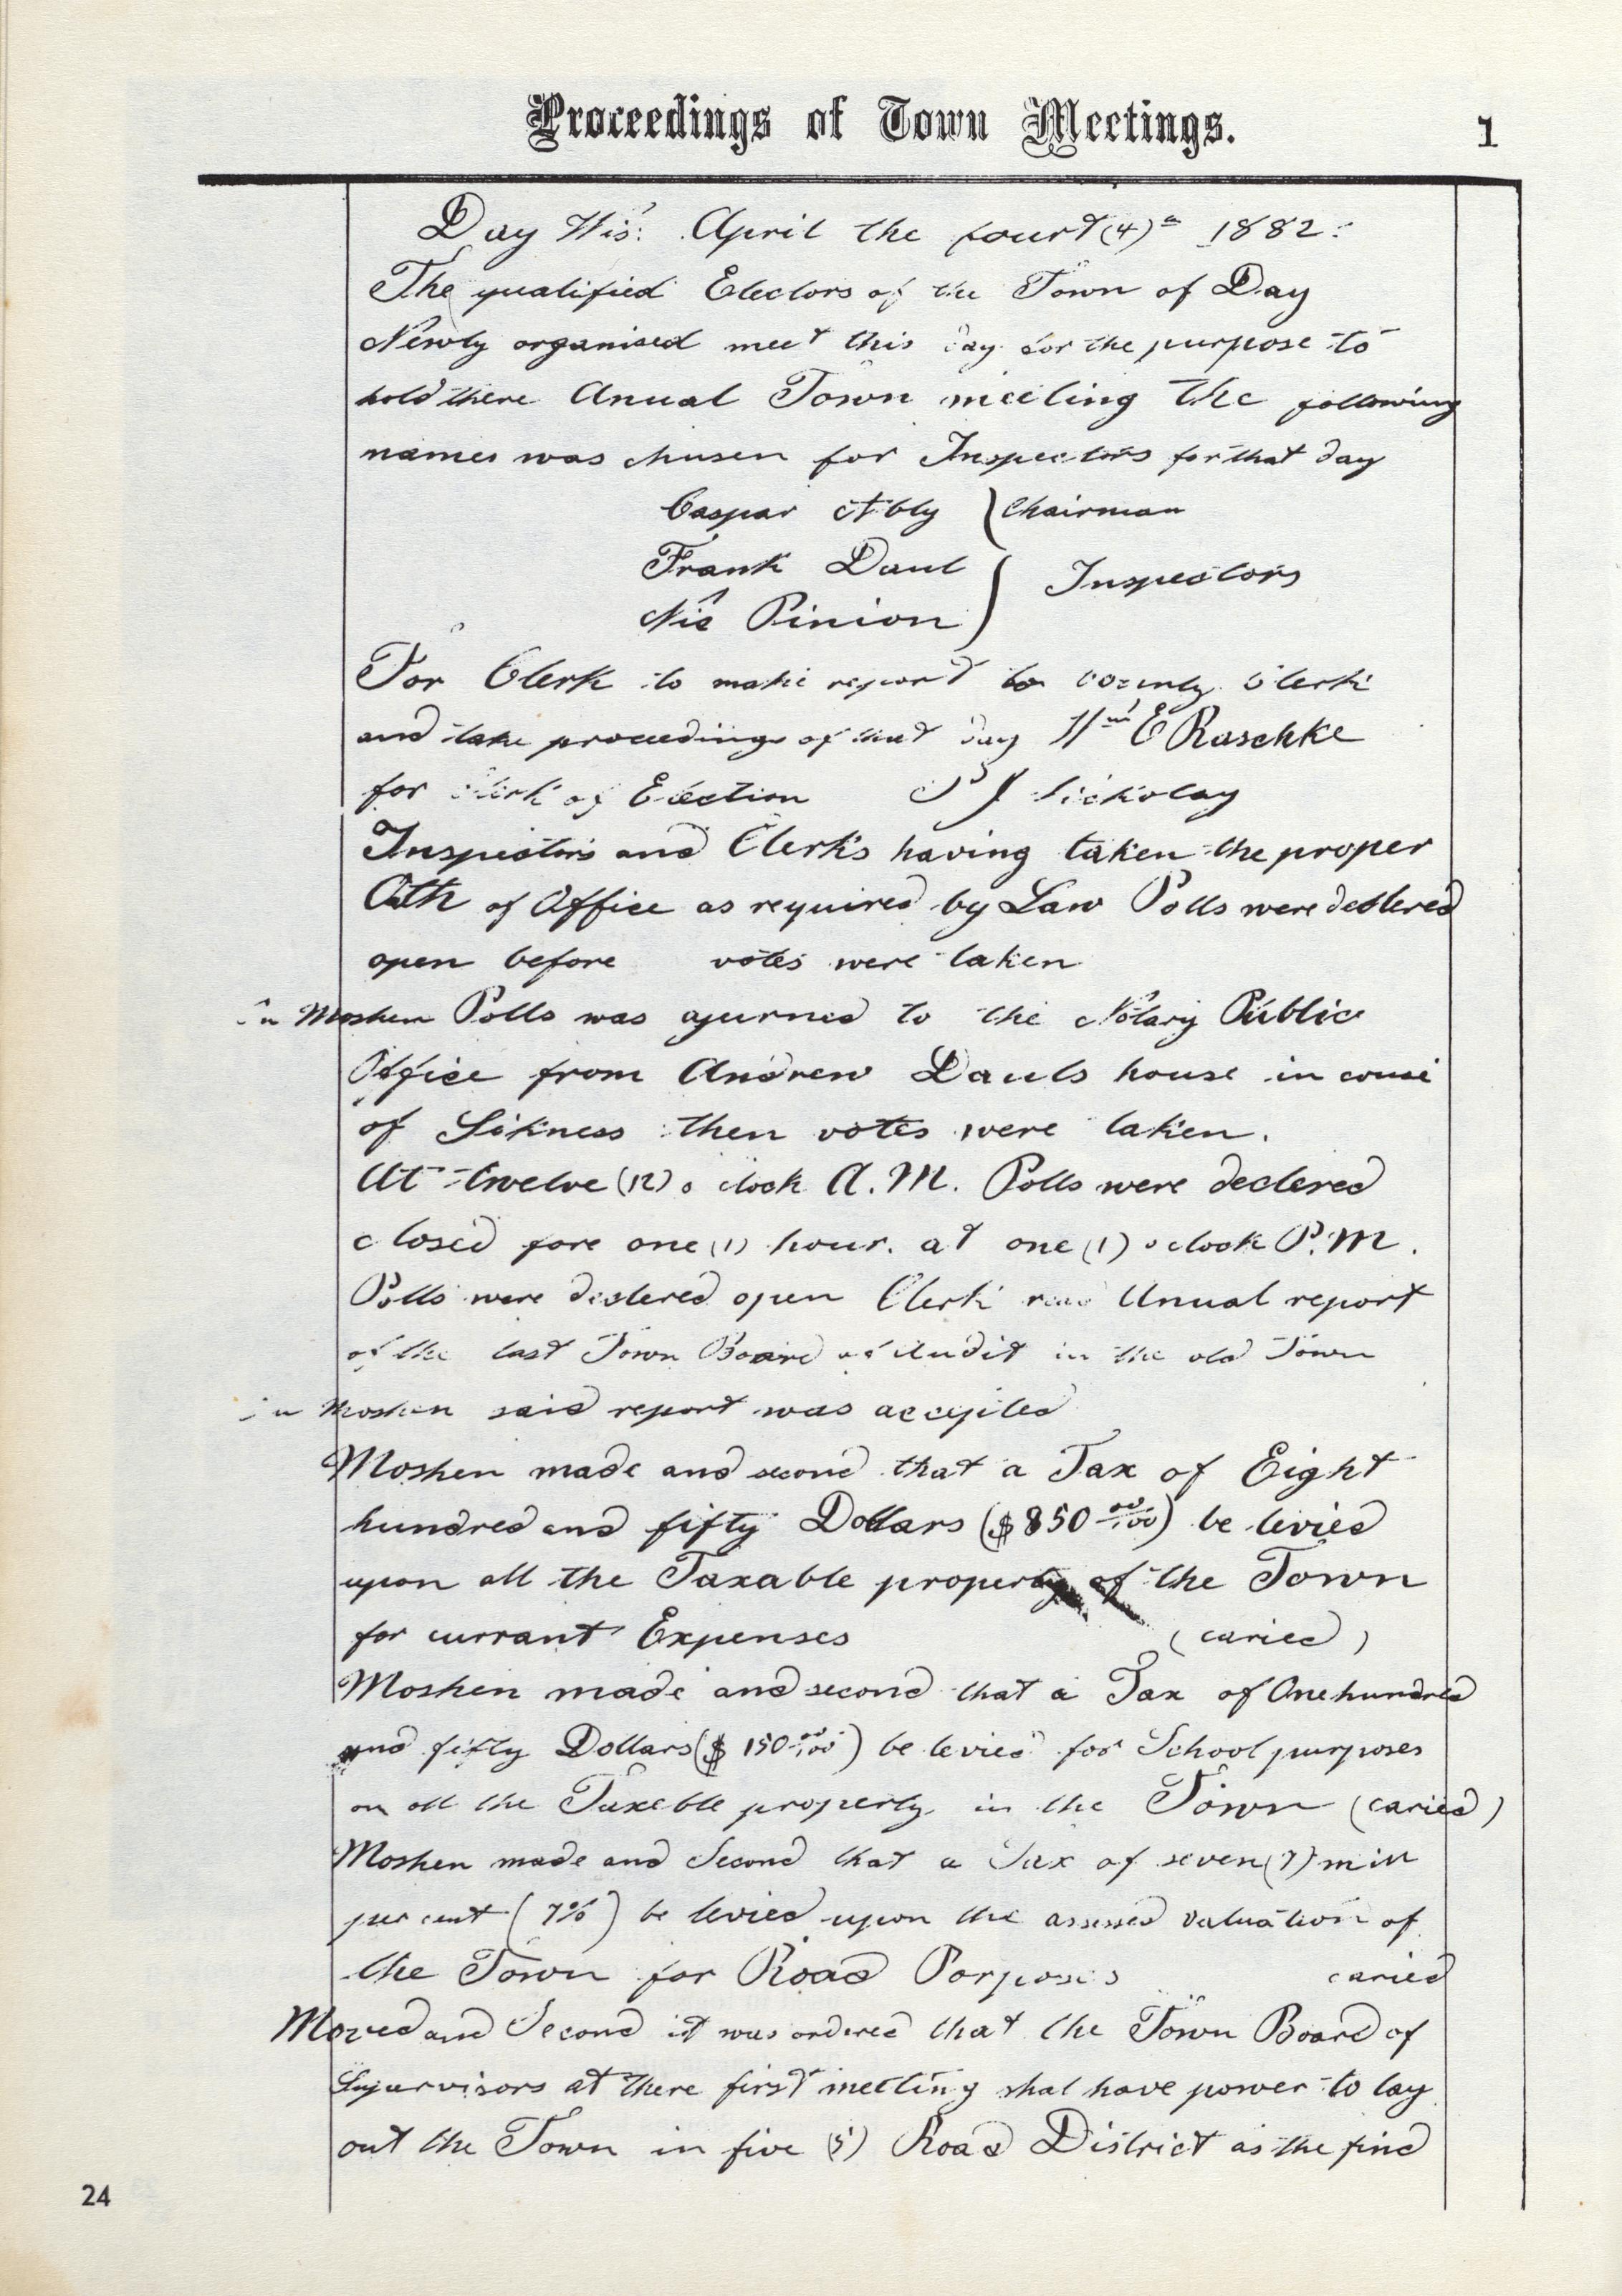 Proceedings of Town Meetings. 1
Day Wis: April the fourt (4)th 1882:
The qualified Electors of the Town of Day
Newly organised meet this day for the purpose to
hold there Anual Town meeting The following
names was chusen for Inspectors for that day
Caspar Ably ) Chairman
Frank Daul
Nic Pinion ) Inspectors
For Clerk to make report to county Clerk
and take proceedings of that day Wm E Raschke
for Clerk of Election
Inspectors and Clerks having taken the proper
Oath of Office as required by Law Polls were declered
open before votes were taken
in Moshen Polls was ajurned to the Notary Public
Office from Andrew Dauls house in couse
of Sikness then votes were taken.
At twelve (12) o clock A.M. Polls were declered
closed fore one (1) hour. at one (1) oclock P.M.
Polls were declered open Clerk read Anual report
of the last Town Board of Audit in the old Town
in Moshen said report was accepted
Moshen made and second that a Tax of Eight
hundred and fifty Dollars ($850 00/100) be levied
upon all the Taxable property of the Town
for currant Expenses (caried)
Moshen made and second that a Tax of One hundred
and fifty Dollars ($ 150 00/100) be levied for School purposes
on all the Taxeble property in the Town (caried)
Moshen made and Second that a Tax of seven (7) mill
per cent (7%) be levied upon the assessed valuation of
the Town for Road Porposes caried
Moved and Second it was ordered that the Town Board of
Supurvisors at there first meeting shal have power to lay
out the Town in five (5) Road District as the find
24